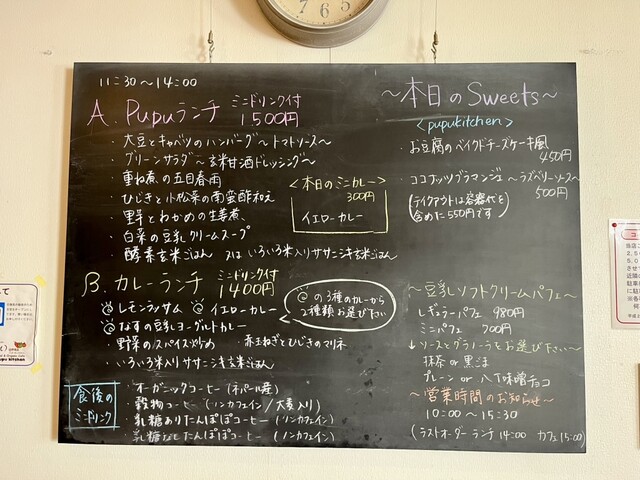 11:30～14:00
A. Pupuランチ ミニドリンク付 1500円
・大豆とキャベツのハンバーグ～トマトソース～
・グリーンサラダ～玄米甘酒ドレッシング～
・重ね煮の五目春雨
・ひじきと小松菜の南蛮酢和え
・里芋とわかめの生姜煮
・白菜の豆乳クリームスープ
・酵素玄米ごはん 又は いろいろ米入りササニシキ玄米ごはん
<本日のミニカレー>
300円
イエローカレー
B. カレーランチ ミニドリンク付 1400円
@レモンラッサム @イエローカレー
@なすの豆乳ヨーグルトカレー
@の3種のカレーから
2種類お選び下さい
・野菜のスパイス炒め ・赤玉ねぎとひじきのマリネ
・いろいろ米入りササニシキ玄米ごはん
食後の
ミニドリンク
・オーガニックコーヒー(ネパール産)
・穀物コーヒー(ノンカフェイン/大麦入り)
・乳糖ありたんぽぽコーヒー(ノンカフェイン)
・乳糖なしたんぽぽコーヒー(ノンカフェイン)
～本日のSweets～
<pupukitchen>
・お豆腐のベイクドチーズケーキ風
450円
・ココナッツブラマンジェ～ラズベリーソース～
500円
(テイクアウトは容器代を
含めた550円です)
～豆乳ソフトクリームパフェ～
レギュラーパフェ 980円
ミニパフェ 700円
↓ソースとグラノーラをお選び下さい～
抹茶 or 黒ごま
プレーン or 八丁味噌チョコ
～営業時間のお知らせ～
10:00～15:30
(ラストオーダー ランチ14:00 カフェ15:00)